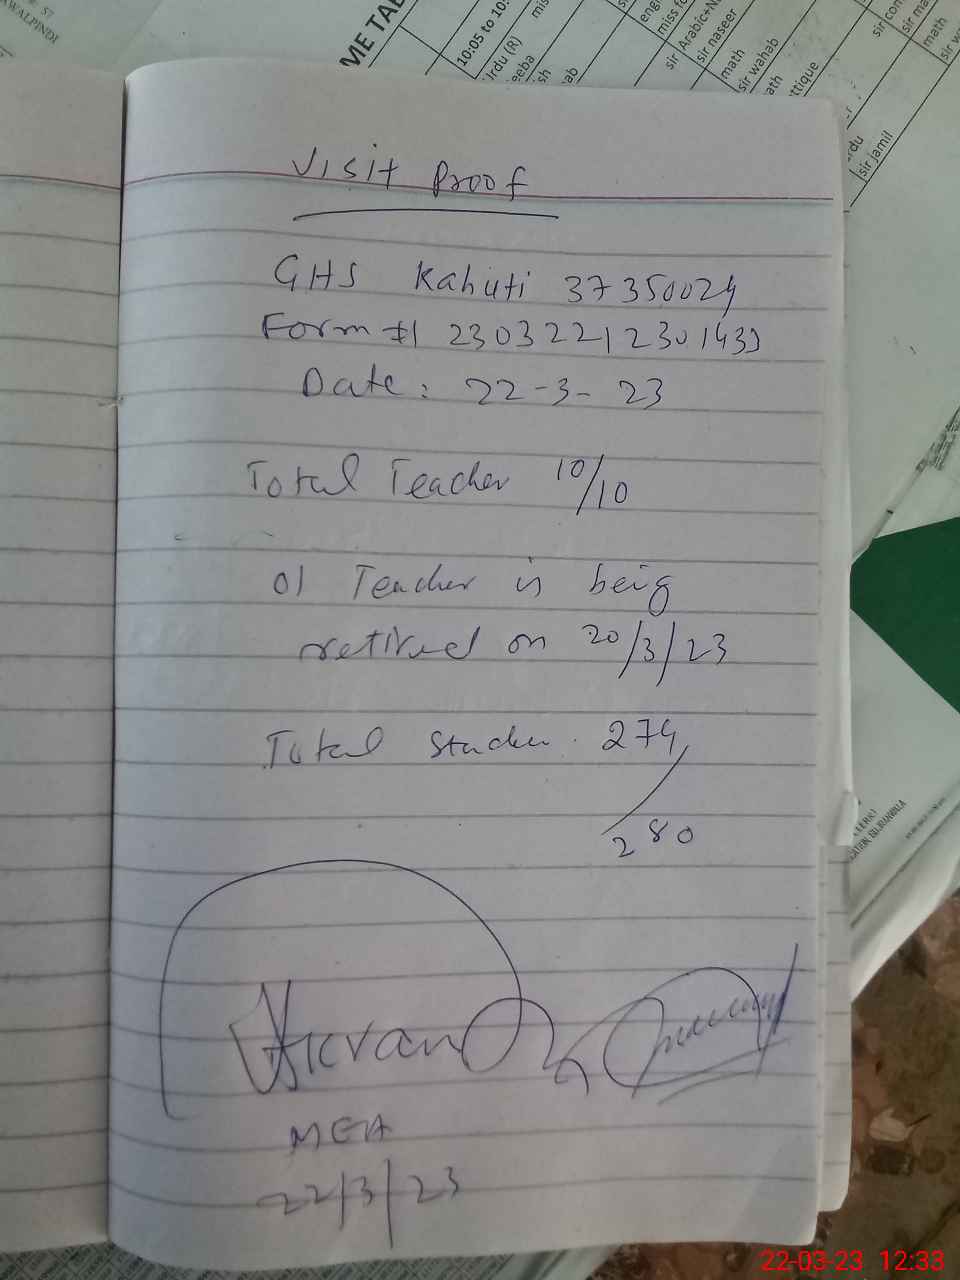 # 57
AWALPINDI
ME TAB
10:05 to 10:
Urdu (R)
eeba
sh
ab
mis
eng
miss fo
sir Arabic+N
sir naseer
math
sir wahab
ath
ttique
sir con
sir ma
math
sir w
urdu
sir jamil
Visit Proof
GHS Kahuti 37350024
Form #1 23032212301433
Date: 22-3-23
Total Teacher 10/10
01 Teacher is being
retired on 20/3/23
Total studen. 274/
280
MEA
22/3/23
CLERK)
CATION
22-03-23 12:33